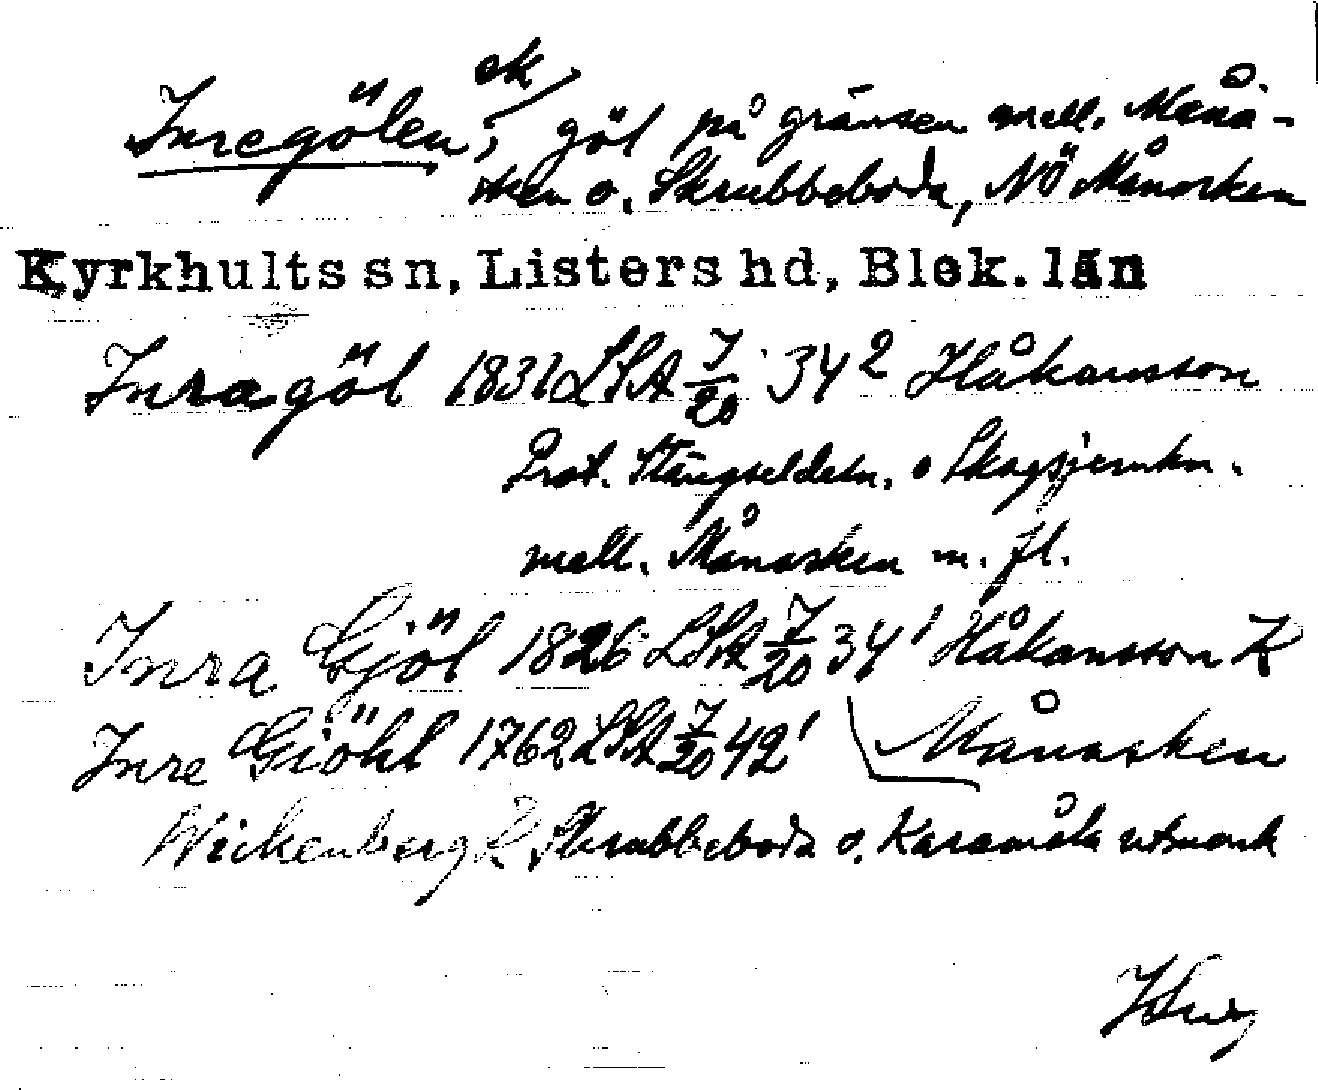 ek
Inregölen, göl på gränsen mell. Måna-
sken o. Skrubbeboda, NÖ Månasken
Kyrkhults sn, Listers hd, Blek. län
Inragöl 1831 LSA 7/20 34² Håkansson
Prot. Stängseldeln. o Skogsjemkn.
mell. Månasken m. fl.
Inra Gjöl 1826 LSA 7/20 34¹ Håkansson K
Inre Giöhl 1762 LSA 7/20 42¹ Månasken
Wickenberg K Skrubbeboda o. Karamåla utmark